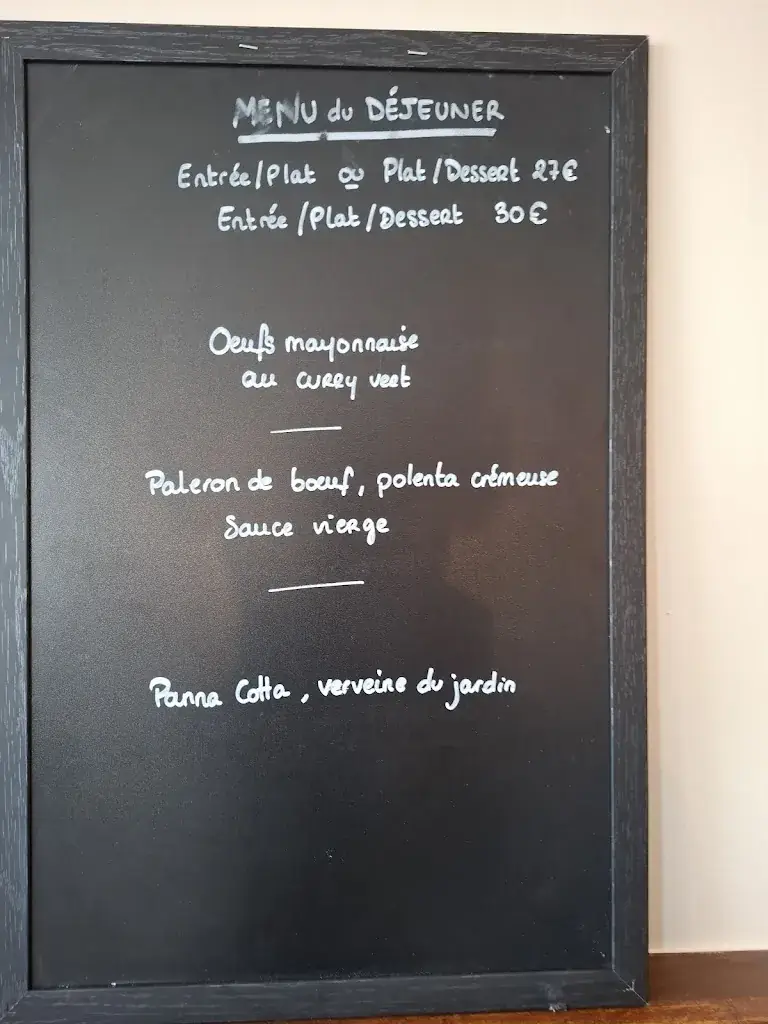 MENU du DÉJEUNER
Entrée/Plat ou Plat/Dessert 27€
Entrée/Plat/Dessert 30€
Oeufs mayonnaise
au curry vert
Paleron de boeuf, polenta crémeuse
Sauce vierge
Panna Cotta, verveine du jardin